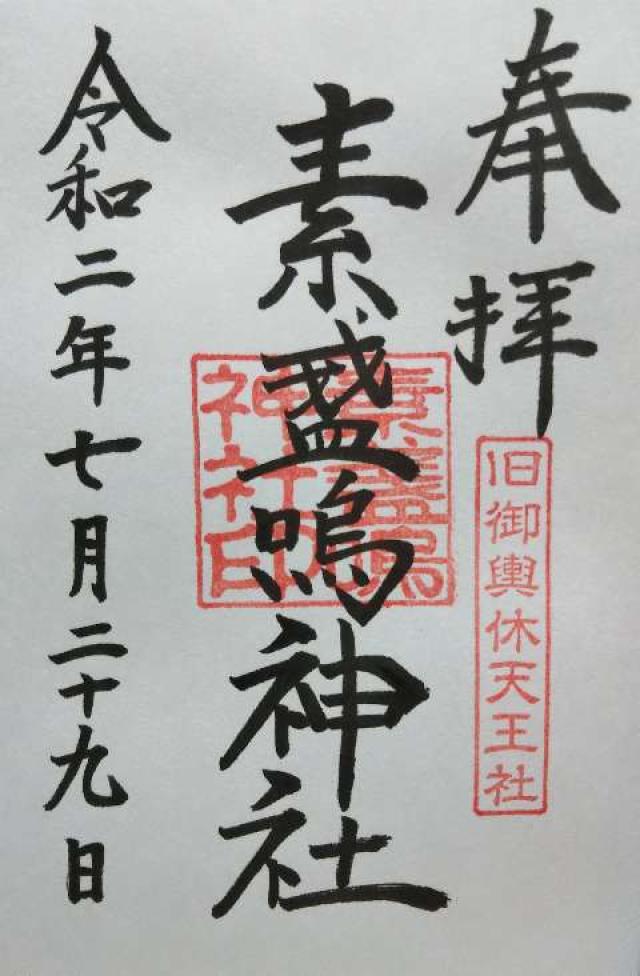 奉拝
旧御輿休天王社
素盞嗚神社
素盞嗚
神社印
令和二年七月二十九日